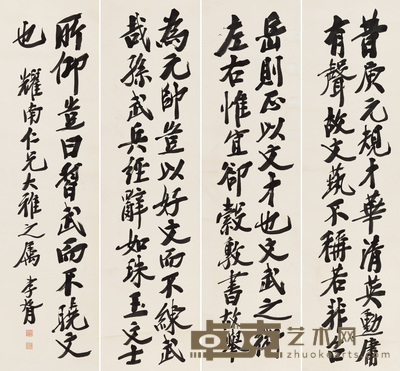 昔庾元規才華清英勳庸
有聲故文藝不稱若非台
岳則正以文才也文武之術
左右惟宜郤縠敦書故舉
為元帥豈以好文而不練武
哉孫武兵經辭如珠玉文士
所仰豈曰習武而不曉文
也 耀南仁兄大雅之属 李
卓克艺术网
zhuokearts.com